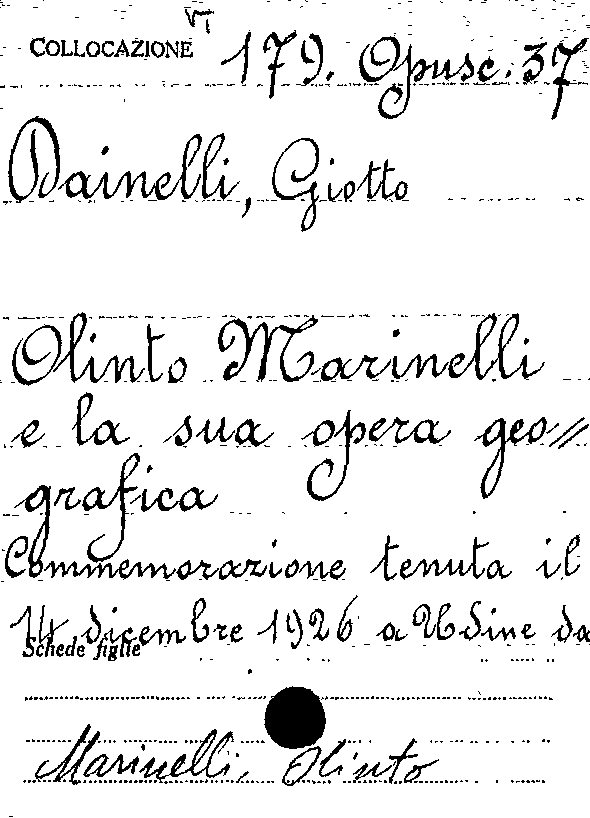 VI
COLLOCAZIONE 179. Opusc. 37
Dainelli, Giotto
Olinto Marinelli
e la sua opera geo=
grafica
Commemorazione tenuta il
14 dicembre 1926 a Udine da
Schede figlie
Marinelli, Olinto